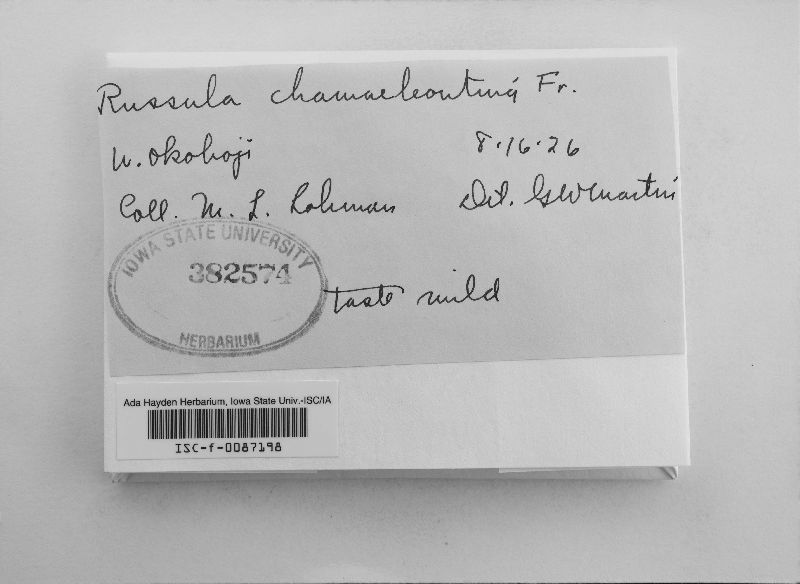 Russula chamaeleontina Fr.
W. Okoboji 8·16·26
Coll. M. L. Lohman Det. GWMartin
IOWA STATE UNIVERSITY
382574
HERBARIUM
taste mild
Ada Hayden Herbarium, Iowa State Univ.-ISC/IA
ISC-f-0087198